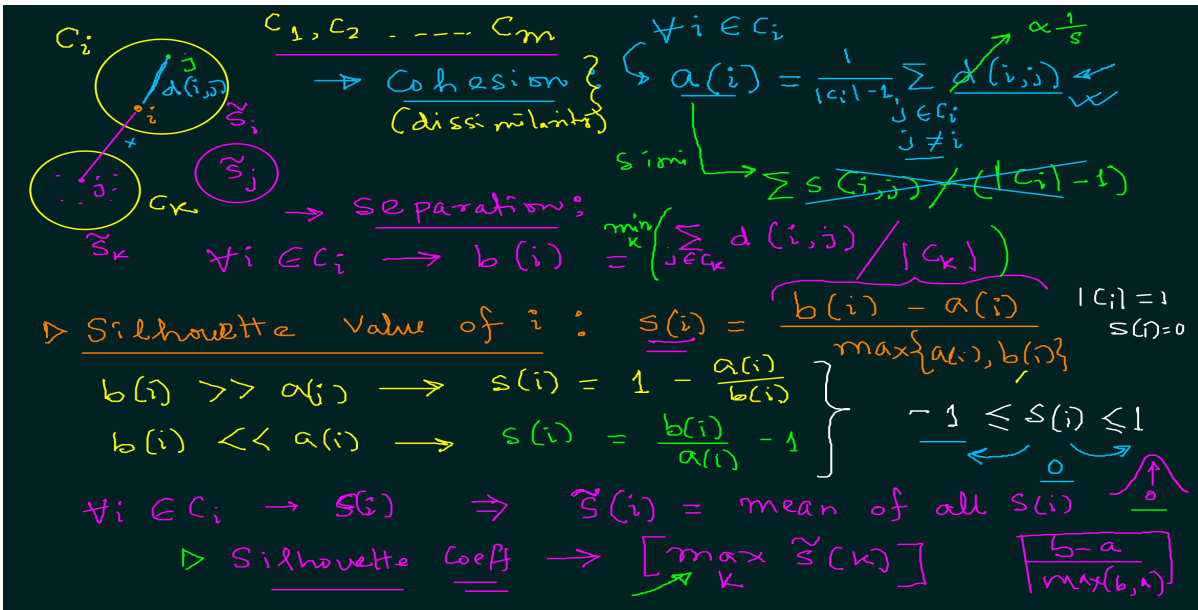 C₁, C₂ . ---- Cₘ
∀ i ∈ Cᵢ
∝ 1/s
Cᵢ
j
d(i,j)
i
→ Cohesion :
(dissimilarity)
a(i) = 1/(|Cᵢ|-1) Σ d(i,j)
j ∈ Cᵢ
j ≠ i
S̃ᵢ
S̃ⱼ
simi
Σ S(i,j) / (|Cᵢ| - 1)
j
Cₖ
S̃ₖ
→ Separation :
∀i ∈ Cᵢ → b(i) = min k ( Σ j∈Cₖ d(i,j) / |Cₖ| )
▷ Silhouette value of i : s(i) = b(i) - a(i) / max{a(i), b(i)}
|Cᵢ| = 1
S(i)=0
b(i) >> a(i) → s(i) = 1 - a(i)/b(i)
b(i) << a(i) → s(i) = b(i)/a(i) - 1
-1 ≤ S(i) ≤ 1
0
∀i ∈ Cᵢ → S(i) ⇒ S̃(i) = mean of all s(i)
0
▷ Silhouette Coeff → [ max k S̃(k) ]
b-a / max(b,a)